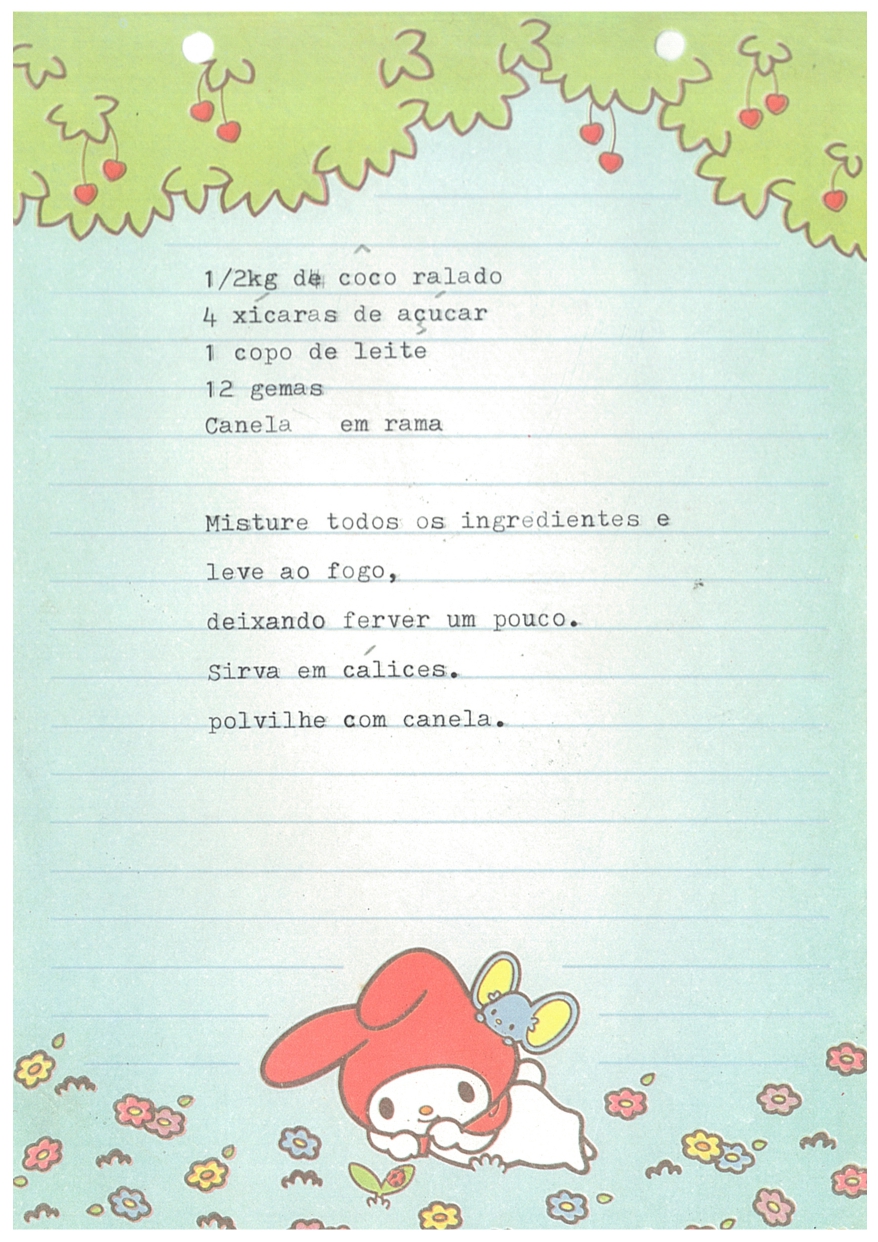 1/2kg de côco ralado
4 xícaras de açúcar
1 copo de leite
12 gemas
Canela em rama
Misture todos os ingredientes e
leve ao fogo,
deixando ferver um pouco.
Sirva em cálices.
polvilhe com canela.